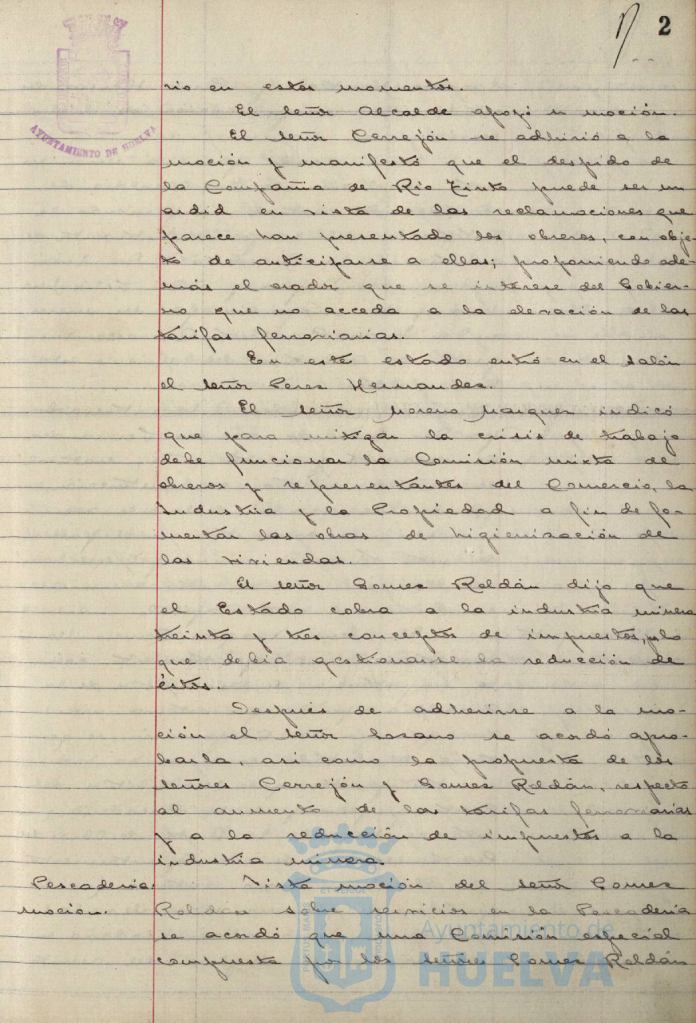 2
AYUNTAMIENTO DE HUELVA
rio en estos momentos.
El señor Alcalde apoyó su moción.
El señor Cerrejón se adhirió a la
moción y manifestó que el despido de
la Compañia de Rio Tinto puede ser un
ardid en vista de las reclamaciones que
parece han presentado los obreros, con obje-
to de anticiparse a ellas; proponiendo ade-
más el orador que se interese del Gobier-
no que no acceda a la elevación de las
tarifas ferroviarias.
En este estado entró en el salón
el señor Perez Hernandez.
El señor Moreno Marquez indicó
que para mitigar la crisis de trabajo
debe funcionar la Comisión mixta de
obreros y representantes del Comercio, la
Industria y la Propiedad a fin de fo-
mentar las obras de higienización de
las viviendas.
El señor Gomez Roldán dijo que
el Estado cobra a la industria minera
treinta y tres conceptos de impuestos, por lo
que debia gestionarse la reducción de
éstos.
Después de adherirse a la mo-
ción el señor Lozano se acordó apro-
barla, asi como la propuesta de los
señores Cerrejón y Gomez Roldán, respecto
al aumento de las tarifas ferroviarias
y a la reducción de impuestos a la
industria minera.
Pescaderia. Vista moción del señor Gomez
mocion. Roldán sobre servicios en la Pescaderia
se acordó que una Comisión especial
compuesta por los señores Gomez Roldán
Ayuntamiento de
HUELVA